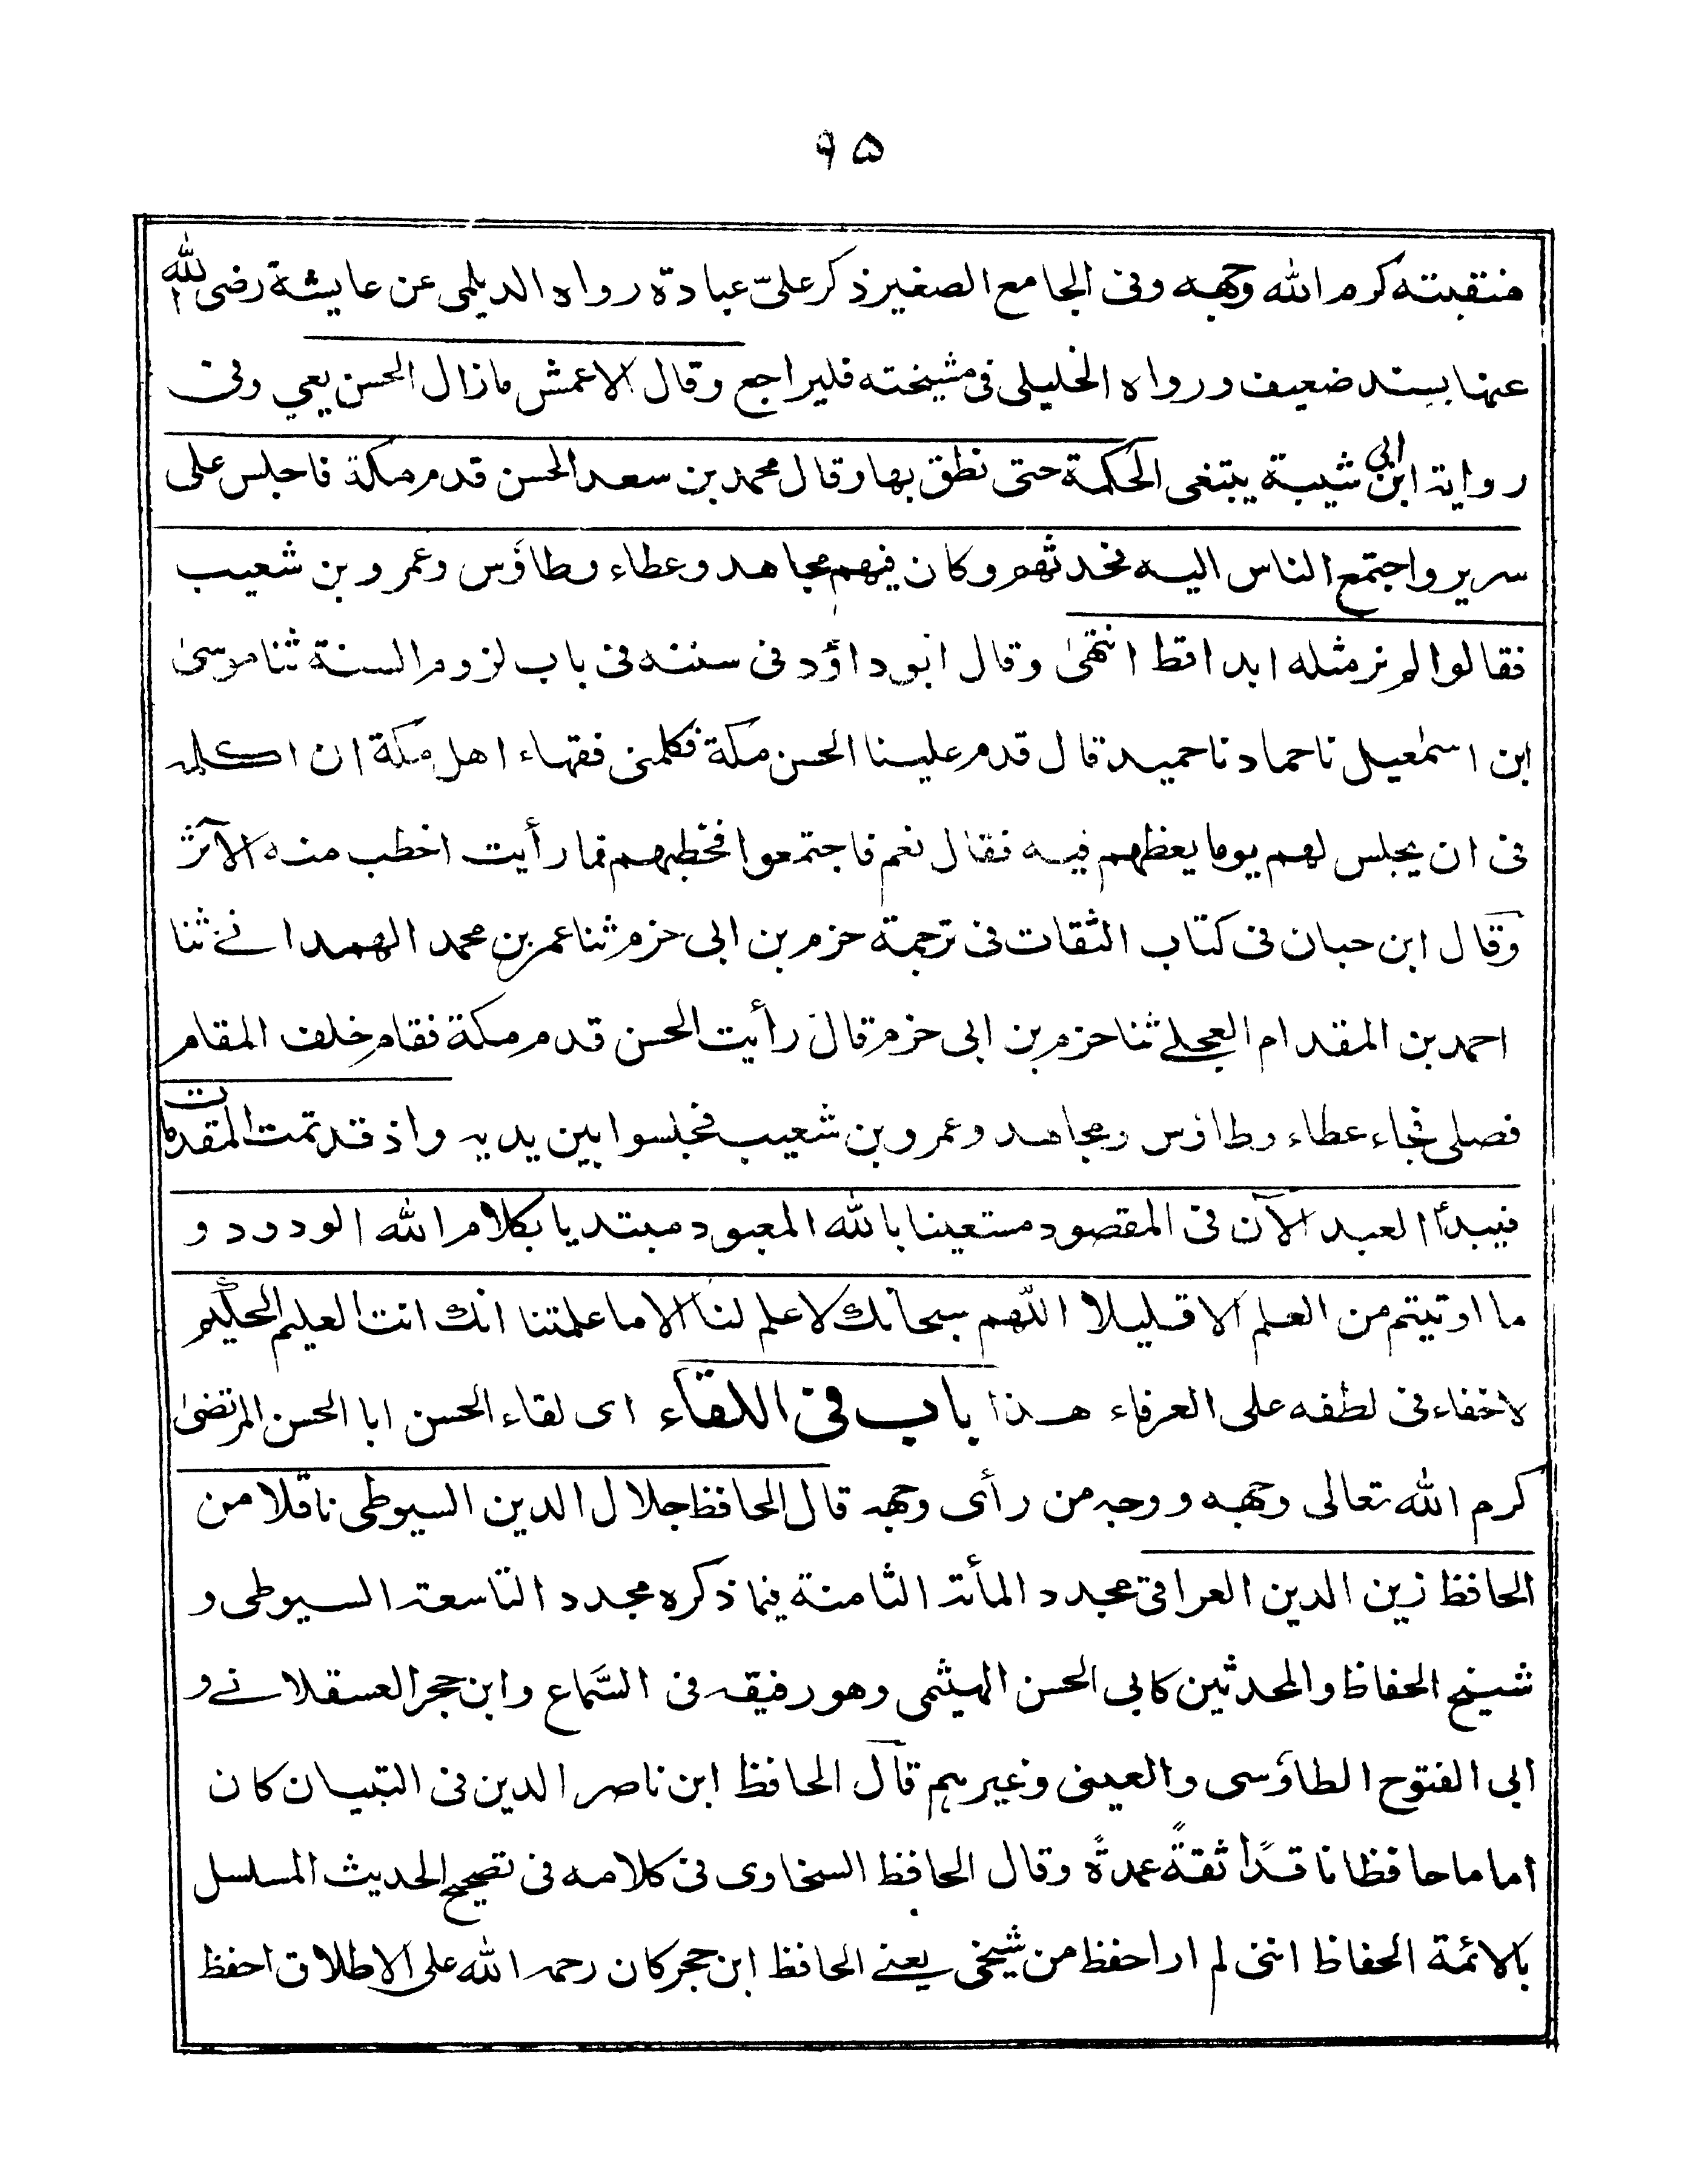 ٩٥
منقبته كرم الله وجهه وفى الجامع الصغير ذكر علىّ عبادة رواه الديلمى عن عايشة رضى الله
عنها بسند ضعيف ورواه الخليلى فى مشيخته فليراجع وقال الاعمش مازال الحسن يعي وفى
رواية ابن ابى شيبة يبتغى الحكمة حتى نطق بها وقال محمد بن سعد الحسن قدم مكة فاجلس على
سرير واجتمع الناس اليه فحدثهم وكان فيهم مجاهد وعطاء وطاؤس وعمرو بن شعيب
فقالوا لم نر مثله ابدا قط انتهىٰ وقال ابو داؤد فى سننه فى باب لزوم السنة ثنا موسىٰ
ابن اسمٰعيل نا حماد نا حميد قال قدم علينا الحسن مكة فكلمنى فقهاء اهل مكة ان اكلمه
فى ان يجلس لهم يوما يعظهم فيه فقال نعم فاجتمعوا فخطبهم فما رأيت اخطب منه الآثر
وقال ابن حبان فى كتاب الثقات فى ترجمة حزم بن ابى حزم ثنا عمر بن محمد الهمدانے ثنا
احمد بن المقدام العجلے ثنا حزم بن ابى حزم قال رأيت الحسن قدم مكة فقام خلف المقام
فصلى فجاء عطاء وطاؤس ومجاهد وعمرو بن شعيب فجلسوا بين يديه واذ قد تمت المقدمات
فيبدأ العبد الآن فى المقصود مستعينا بالله المعبود مبتديا بكلام الله الودود و
ما اوتيتم من العلم الا قليلا اللّٰهم سبحانك لا علم لنا الا ما علمتنا انك انت العليم الحكيم
لاخفاء فى لطفه على العرفاء هذا باب فى اللقاء اى لقاء الحسن ابا الحسن المرتضىٰ
كرم الله تعالى وجهه ووجه من رأى وجهه قال الحافظ جلال الدين السيوطى ناقلا من
الحافظ زين الدين العراقى مجدد المأته الثامنة فيما ذكره مجدد التاسعة السيوطى و
شيخ الحفاظ والمحدثين كابى الحسن الهيثمى وهو رفيقه فى السَّماع وابن حجر العسقلانے و
ابى الفتوح الطاؤسى والعينى وغيرهم قال الحافظ ابن ناصر الدين فى التبيان كان
اماما حافظا ناقدًا ثقةً عمدةً وقال الحافظ السخاوى فى كلامه فى تصحيح الحديث المسلسل
بالائمة الحفاظ اننى لم ار احفظ من شيخى يعنے الحافظ ابن حجر كان رحمه الله على الاطلاق احفظ